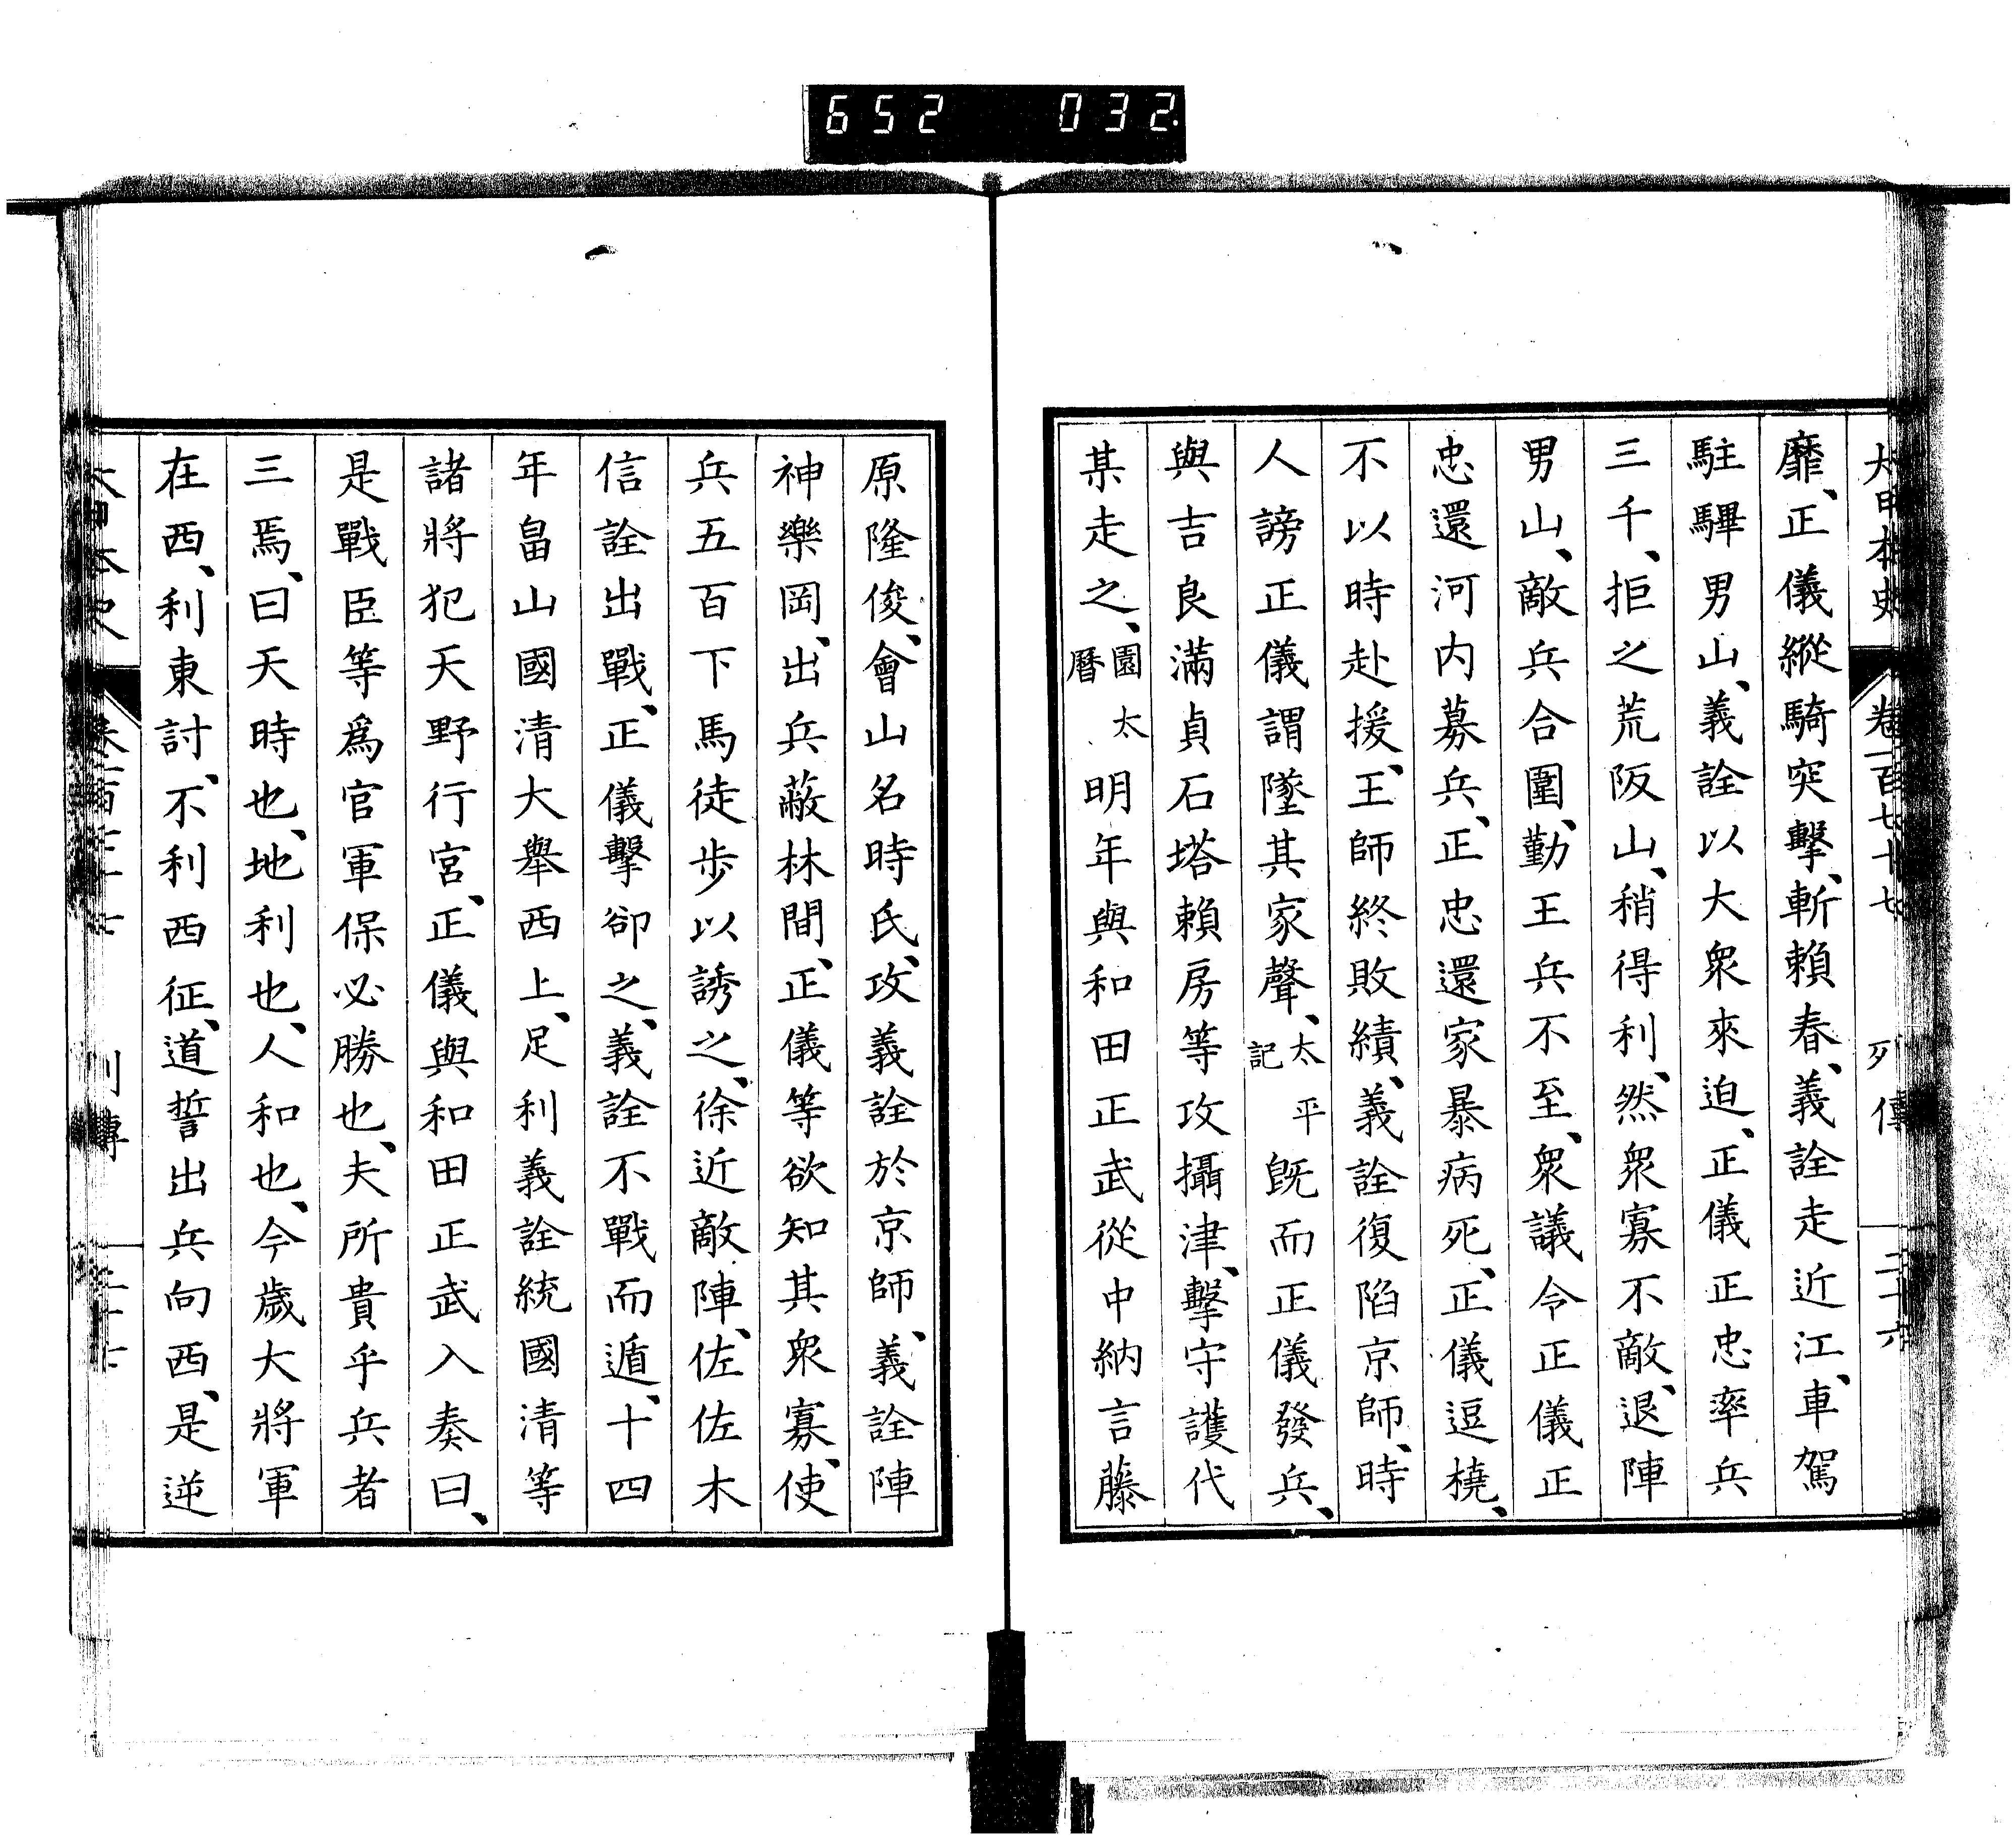 652 032
大日本史 卷一百七十七 列傳 二十六
靡、正儀縱騎突擊、斬賴春、義詮走近江、車駕
駐驆男山、義詮以大衆來迫、正儀正忠率兵
三千、拒之荒阪山、稍得利、然衆寡不敵、退陣
男山、敵兵合圍、勤王兵不至、衆議令正儀正
忠還河内募兵、正忠還家暴病死、正儀逗橈、
不以時赴援、王師終敗績、義詮復陷京師、時
人謗正儀謂墜其家聲、太平記 既而正儀發兵、
與吉良滿貞石塔賴房等攻攝津、擊守護代
某走之、園太曆 明年與和田正武從中納言藤
原隆俊、會山名時氏、攻義詮於京師、義詮陣
神樂岡、出兵蔽林間、正儀等欲知其衆寡、使
兵五百下馬徒步以誘之、徐近敵陣、佐佐木
信詮出戰、正儀擊卻之、義詮不戰而遁、十四
年畠山國清大舉西上、足利義詮統國清等
諸將犯天野行宮、正儀與和田正武入奏曰、
是戰臣等爲官軍保必勝也、夫所貴乎兵者
三焉、曰天時也、地利也、人和也、今歲大將軍
在西、利東討、不利西征、道誓出兵向西、是逆
大日本史 卷一百七十七 列傳 二十七